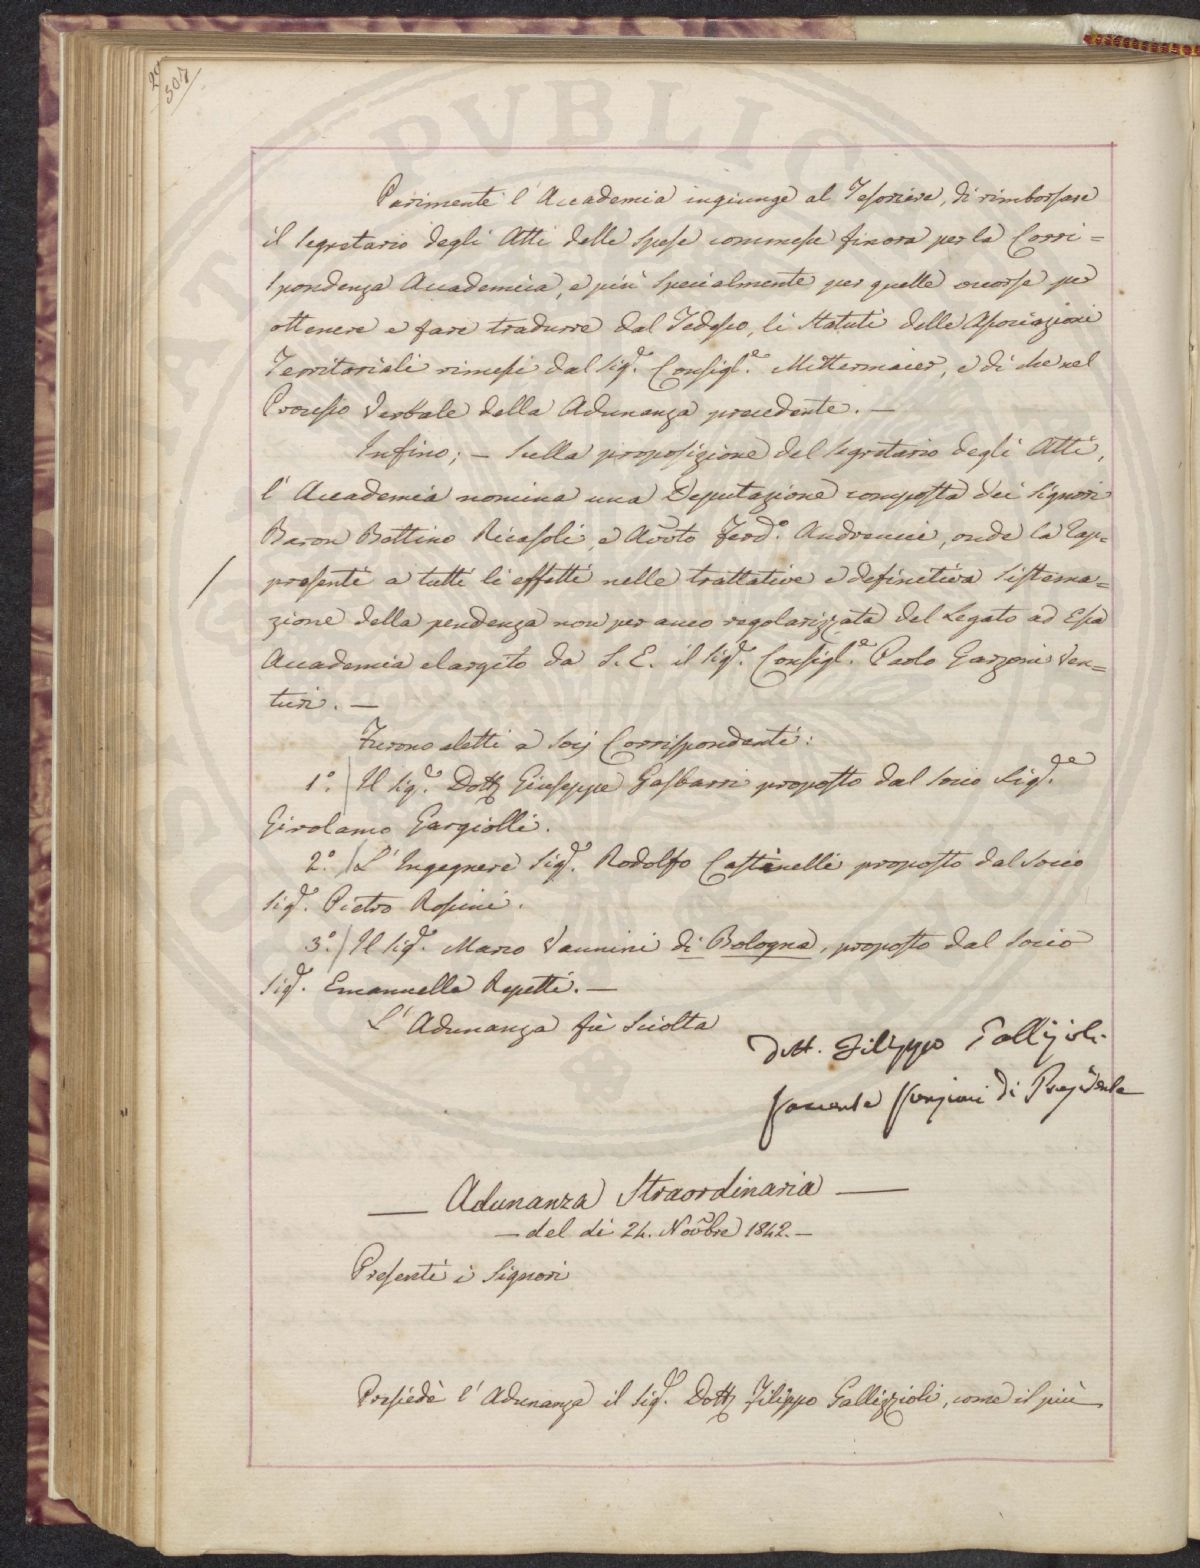 307
Parimente l'Accademia ingiunge al Tesoriere, di rimborsare
il Segretario degli Atti delle spese commesse finora per la Corri=
spondenza Accademica, e più specialmente per quelle occorse per
ottenere e fare tradurre dal Tedesco, li Statuti delle Associazioni
Territoriali rimessi dal Sigr. Consigle. Mittermaier, e di che nel
Processo Verbale della Adunanza precedente. —
Infine; — Sulla proposizione del Segretario degli Atti,
l'Accademia nomina una Deputazione composta dei Signori
Baron Bettino Ricasoli, e Avvto Ferdo. Andreucci, onde la rap=
presenti a tutti li effetti nelle trattative e definitiva sistema=
zione della pendenza non per anco regolarizzata del Legato ad Essa
Accademia elargito da S. E. il Sigr. Consigle. Paolo Garzoni Ven=
turi. —
Furono eletti a Socj Corrispondenti:
1°. Il Sigr. Dott Giuseppe Gasbarri proposto dal Socio Sigre.
Girolamo Gargiolli.
2°. L'Ingegnere Sigr. Rodolfo Castinelli proposto dal Socio
Sigr. Pietro Rosini.
3°. Il Sigr. Marco Vannini di Bologna, proposto dal Socio
Sigr. Emanuelle Repetti. —
L'Adunanza fù sciolta
Dott. Filippo Gallizioli
facente funzioni di Presidente
— Adunanza Straordinaria —
— del dì 24. Novbre 1842. —
Presenti i Signori
Presiedè l'Adunanza il Sigr. Dott Filippo Gallizzioli, come il più